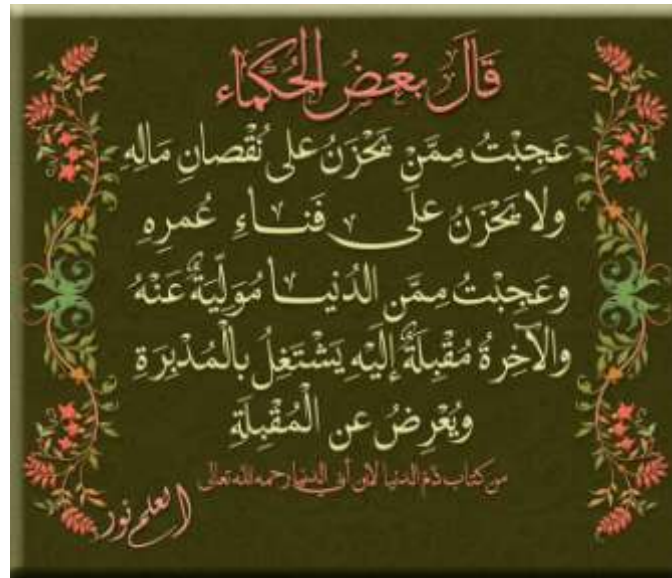 قَالَ بَعْضُ الحُكَمَاء
عَجِبْتُ مِمَّنْ يَحْزَنُ على نُقْصانِ مَالِهِ
ولا يَحْزَنُ علَى فَنَاءِ عُمرِهِ
وعَجِبْتُ مِمَّن الدُنيا مُوَلِّيَةٌ عَنْهُ
والآخِرةُ مُقْبِلَةٌ إِلَيْهِ يَشْتَغِلُ بالْمُدْبِرَةِ
ويُعْرِضُ عن الْمُقْبِلَةِ
من كتاب ذم الدنيا لابن أبي الدنيا رحمه الله تعالى
العلم نور